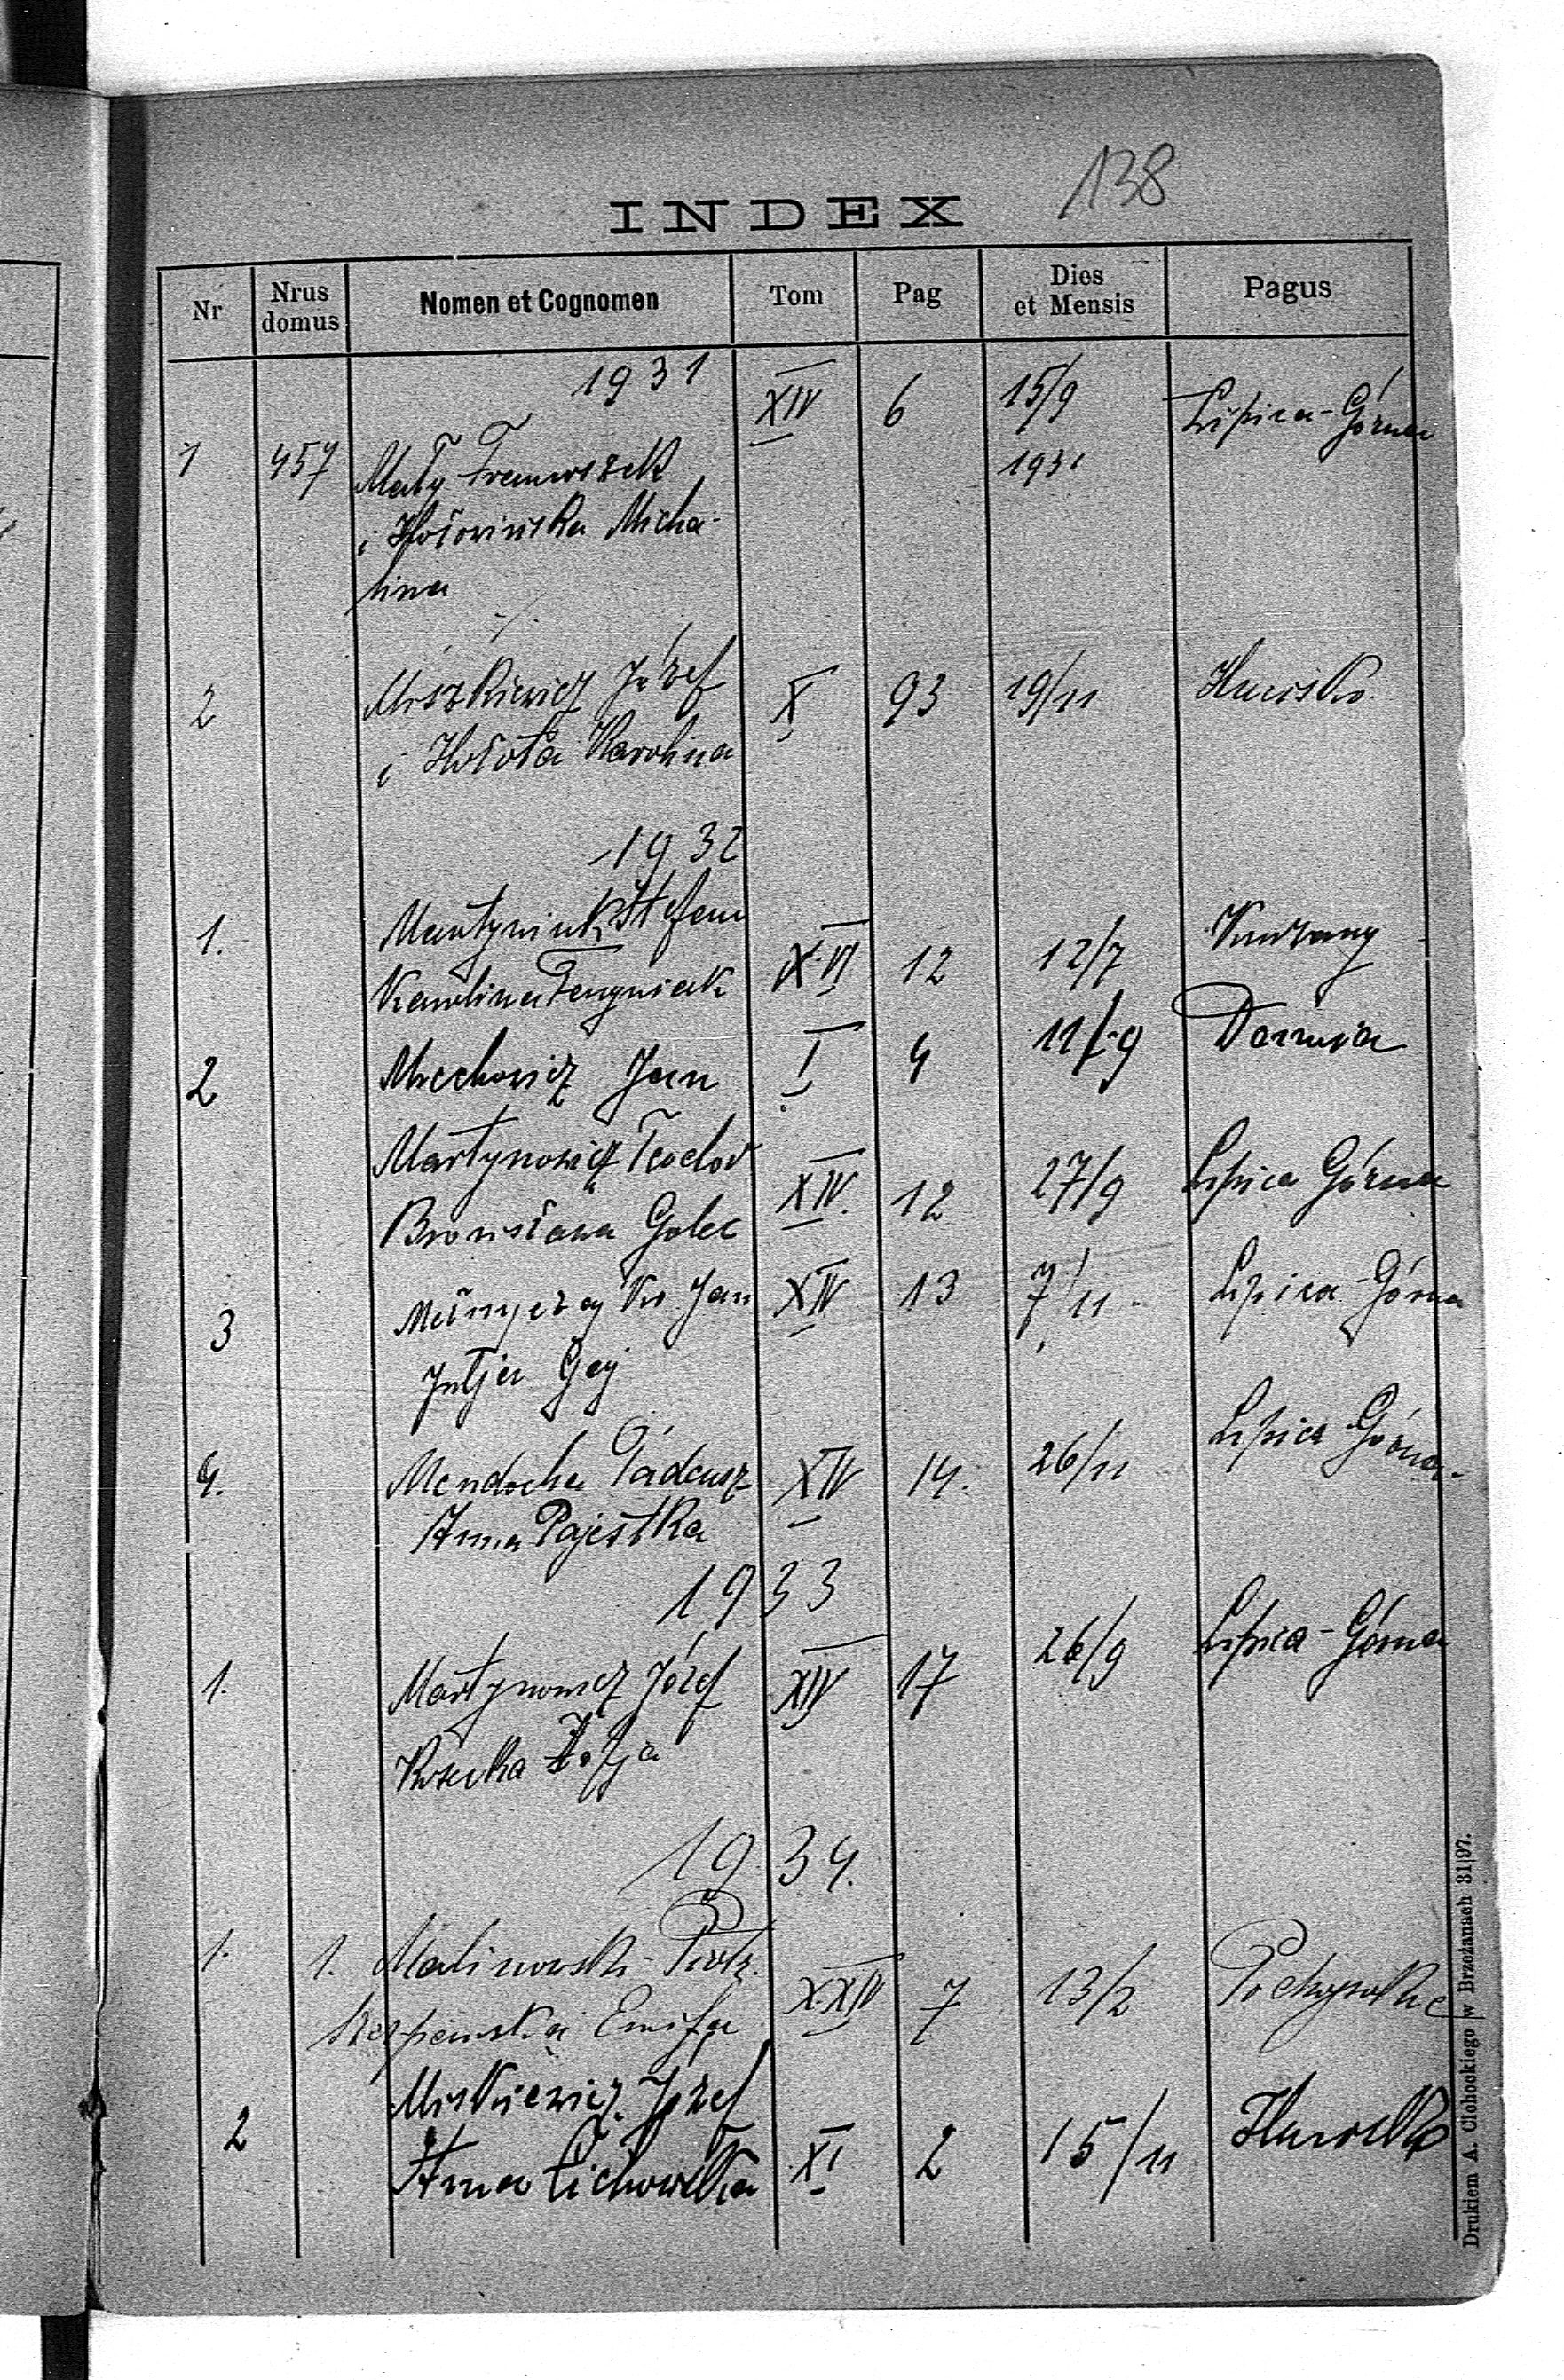 138
INDEX
Nr Nrus domus Nomen et Cognomen Tom Pag Dies et Mensis Pagus
1931 XIV 6 15/9 Lipica-Górna
1 457 Mały Franciszek 1931
i Hołowińska Micha-
lina
2 Miszkiewicz Józef X 93 19/11
i Hołota Karolina
1932
1. Martyniuk Stefan
Karolina XVI 12 12/7
2 Miechowicz Jan I 4 11/9
Martynowicz Teodor XIV. 12 27/9 Lipica Górna
Bronisława Golec
3 Jan XIV 13 7/11 Lipica-Górna
Gaj
4. Mendocha Tadeusz XIV 14. 26/11 Lipica Górna
Anna Pajestka
1933
1. Martynowicz Józef XIV 17 26/9 Lipica-Górna
Zofja
1934.
1. 1. Malinowski Piotr XXIV 7 13/2
Emilja
2 Miskiewicz Józef
Anna Cichowska XI 2 15/11
Drukiem A. Cichockiego w Brzeżanach 31|97.